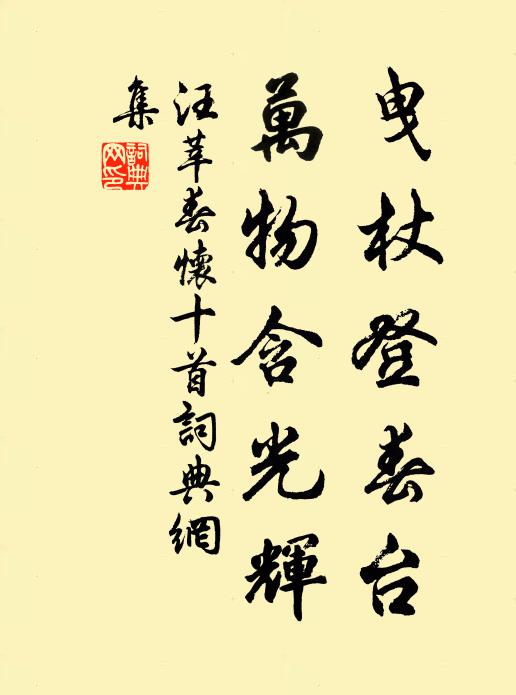 曳杖登春台
萬物含光輝
汪莘春懷十首詞典網
集
詞典網印